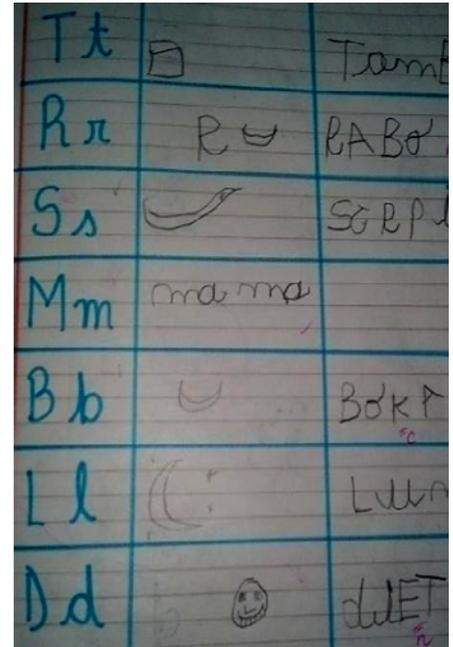 T t Tam
R r R RABO
S s SERP
M m mama
B b BOKA
*c
L l LUU
D d dUET
*n